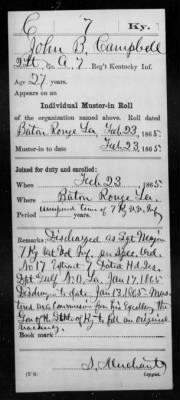 C 7 Ky.
John B. Campbell
2 Lt, Co. A, 7 Reg't Kentucky Inf.
Age 27 years.
Appears on an
Individual Muster-in Roll
of the organization named above. Roll dated
Baton Rouge La, Feb 23, 1865.
Muster-in to date Feb 23, 1865.
Joined for duty and enrolled:
When Feb 23, 1865
Where Baton Rouge La.
unexpired time of 7 Ky
Period years.
Remarks: Discharged as Sgt Major
7 Ky Vet Inf per Spec. Ord.
No 17 Extract Hd Qrs
Dpt Gulf N.O. La. Jan 17, 1865
Discharge to date Jan 13, 1865. Mus-
tered on a Commission from his Excellency the
Gov of the State of Ky to fill an original
vacancy.
Book mark:
S. Merchant
Copyist.